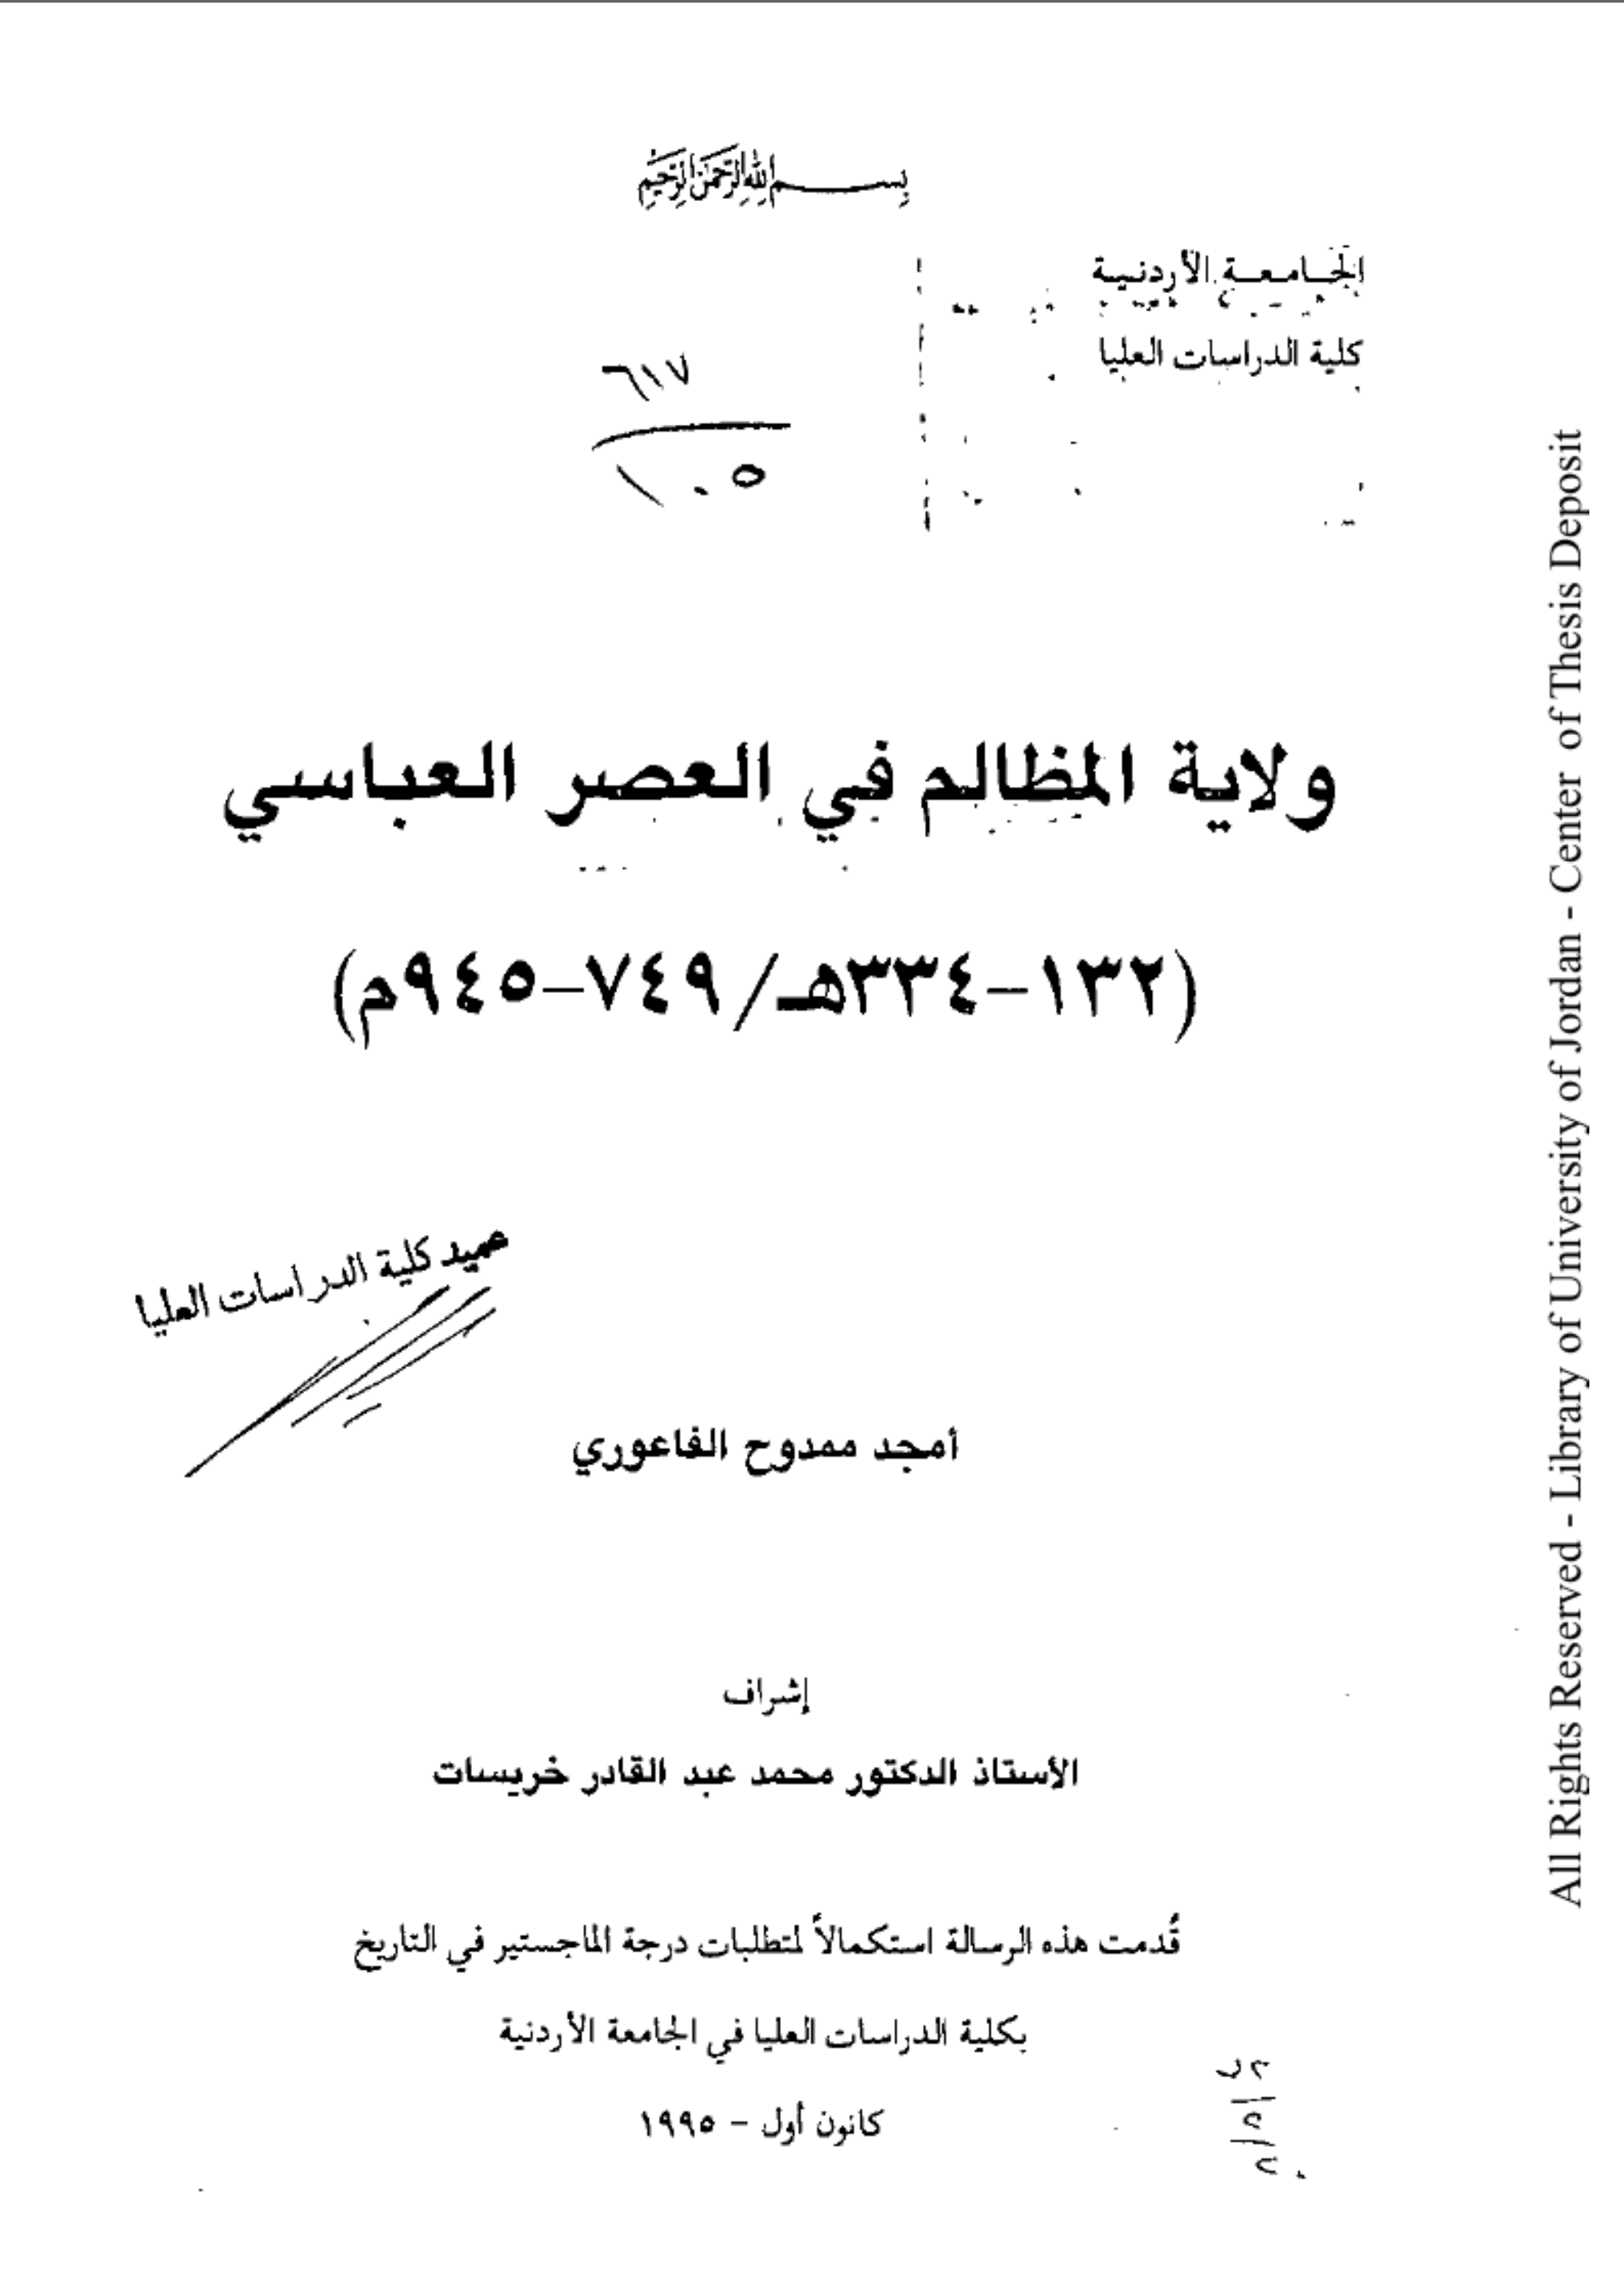 بسم الله الرحمن الرحيم
الجامعة الأردنية
كلية الدراسات العليا
٦١٧
١٠٥
ولاية المظالم في العصر العباسي
(١٣٢-٣٣٤هـ/٧٤٩-٩٤٥م)
عميد كلية الدراسات العليا
أمجد ممدوح الفاعوري
إشراف
الأستاذ الدكتور محمد عبد القادر خريسات
قُدمت هذه الرسالة استكمالاً لمتطلبات درجة الماجستير في التاريخ
بكلية الدراسات العليا في الجامعة الأردنية
كانون أول - ١٩٩٥
All Rights Reserved - Library of University of Jordan - Center of Thesis Deposit